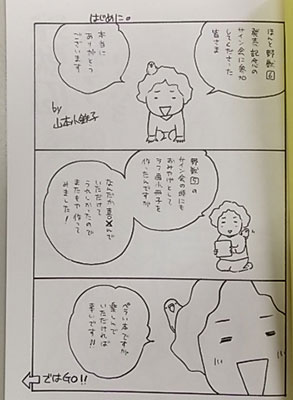 はじめに。
ほんと野獣⑥
発売記念の
サイン会に参加
してくださった
皆さま
本当に
ありがとう
ございます
by
山本小鉄子
野獣⑤の
サイン会の時にも
おみやげとして
ラフ画小冊子を
作ったんですが
なんだか喜んで
いただけて
うれしかったので
またもや作って
みました!
ぺらい本ですが
楽しんで
いただければ
幸いです!!
ではGO!!